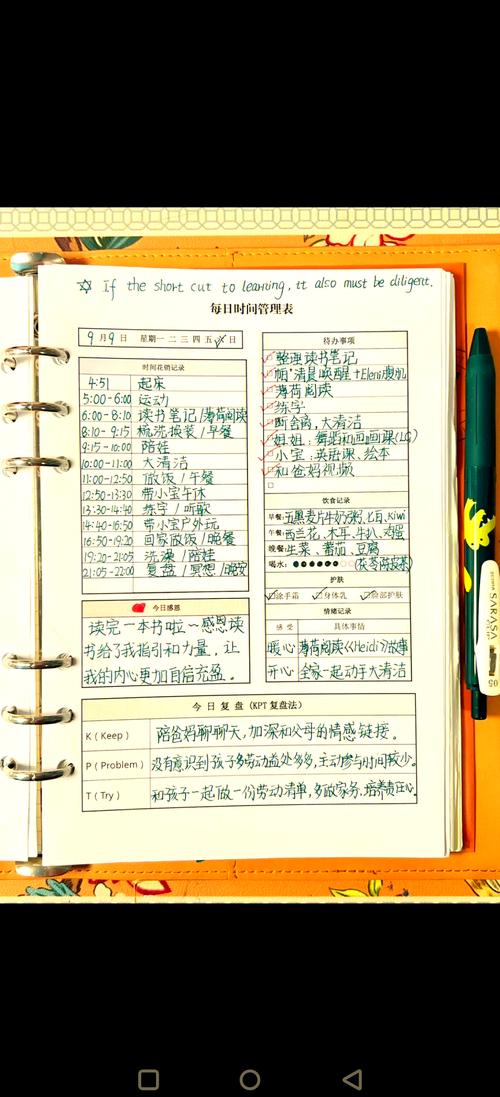 ✡ If the short cut to learning, it also must be diligent.
每日时间管理表
9月9日 星期一 二 三 四 五 六 日
时间花销记录
4:51 起床
5:00-6:00 运动
6:00-8:10 读书笔记/薄荷阅读
8:10-9:15 梳洗换装/早餐
9:15-10:00 陪娃
10:00-11:00 大清洁
11:00-12:50 做饭/午餐
12:50-13:30 带小宝午休
13:30-14:40 练字/听歌
14:40-16:50 带小宝户外玩
16:50-19:20 回家做饭/晚餐
19:20-21:05 洗澡/陪娃
21:05-22:00 复盘/冥想/晚安
今日感恩
读完一本书啦~感恩读
书给了我指引和力量,让
我的内心更加自信充盈。
待办事项
整理读书笔记
帕清晨唤醒+Eleni腹肌
薄荷阅读
练字
断舍离,大清洁
姐姐:舞蹈和画画课(LG)
小宝:英语课、绘本
和爸妈视频
饮食记录
早餐:五黑麦片牛奶粥、七白、kiwi
午餐:西兰花、木耳、牛扒、鸡蛋
晚餐:生菜、番茄、豆腐
喝水:●●●●●●○○(茯苓陈皮茶)
护肤
涂手霜 身体乳 脸部护肤
情绪记录
感受 具体事情
暖心 薄荷阅读《Heidi》故事
开心 全家一起动手大清洁
今日复盘(KPT复盘法)
K(Keep) 陪爸妈聊聊天,加深和父母的情感链接。
P(Problem) 没有意识到孩子多劳动益处多多,主动参与时间较少。
T(Try) 和孩子一起做一份劳动清单,多做家务,培养责任心。
SARASA
05